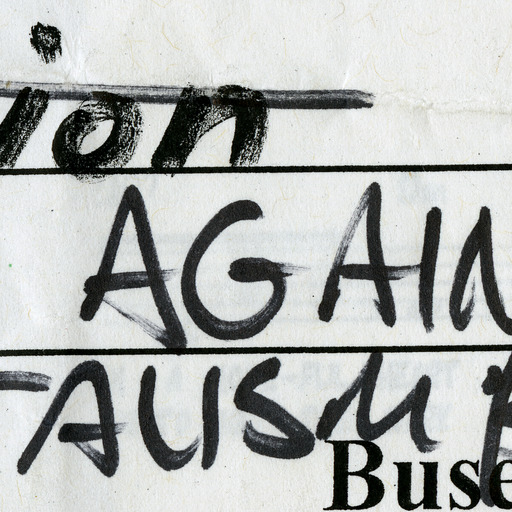 ion
AGAIN
TALISM
Buse